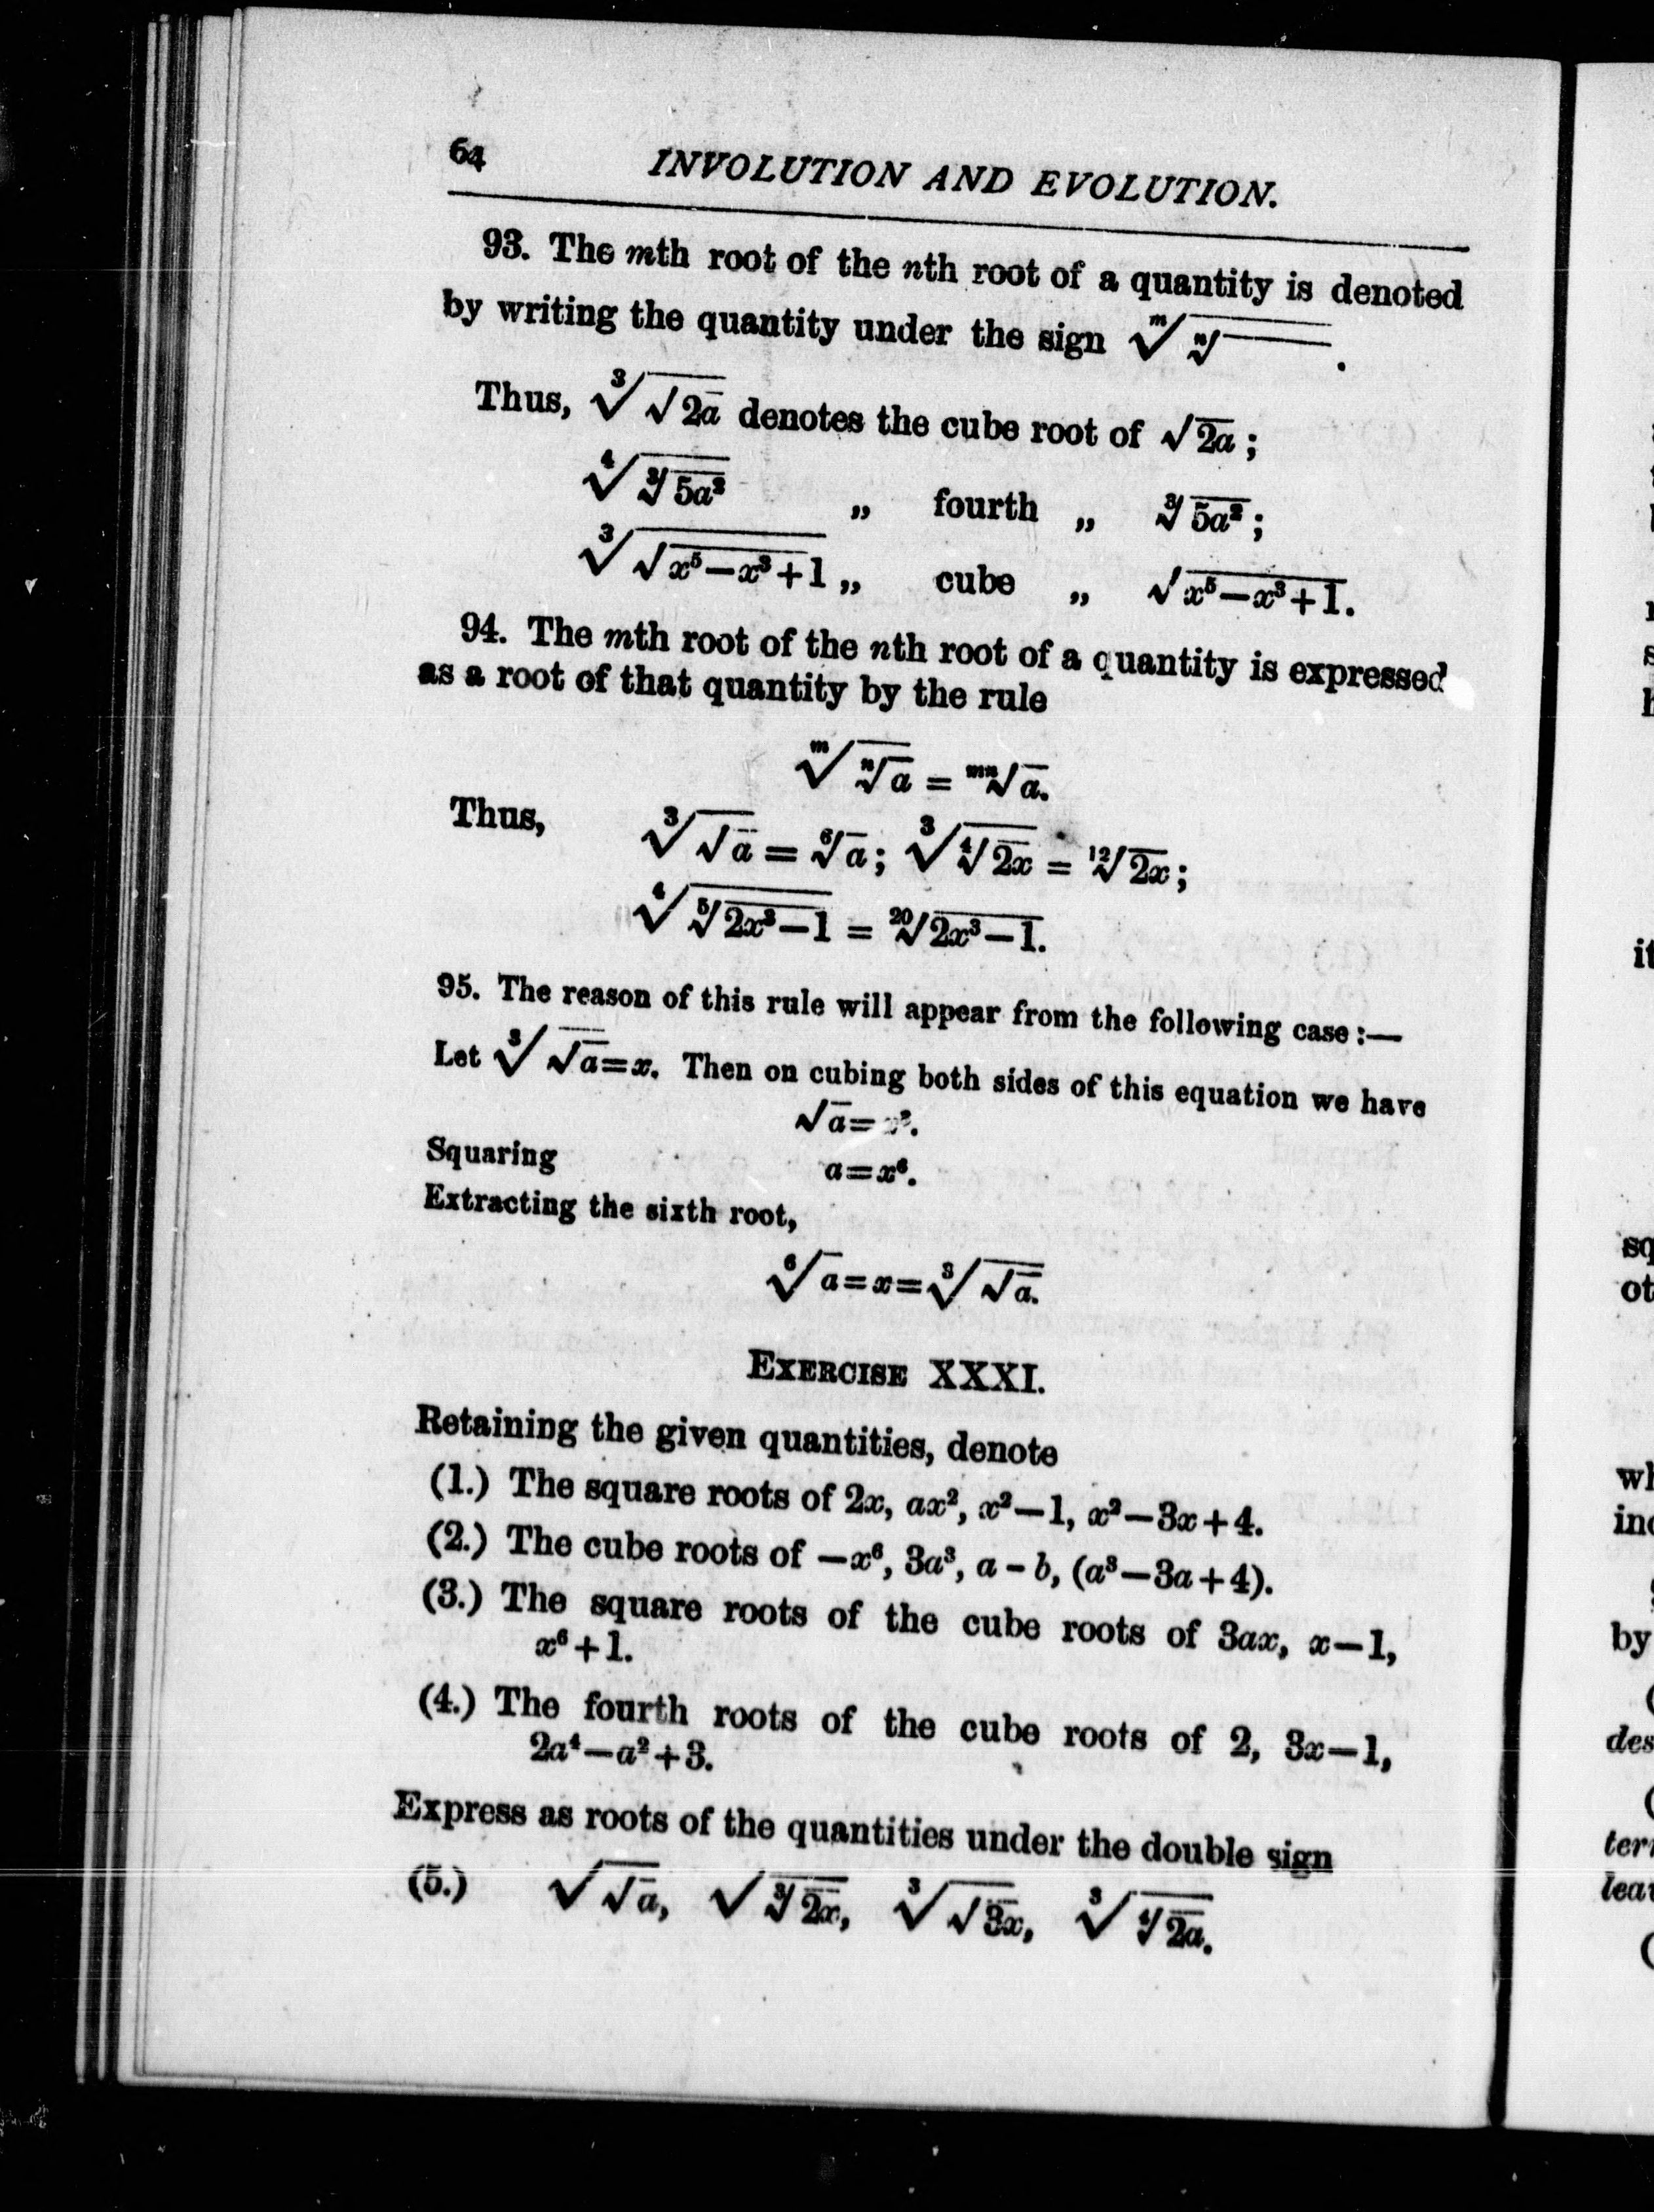 64 INVOLUTION AND EVOLUTION.
93. The mth root of the nth root of a quantity is denoted
by writing the quantity under the sign ᵐ√ ⁿ√‾‾‾.
Thus, ³√√2a denotes the cube root of √2a;
⁴√³√5a² „ fourth „ ³√5a²;
³√√x⁵−x³+1 „ cube „ √x⁵−x³+1.
94. The mth root of the nth root of a quantity is expressed
as a root of that quantity by the rule
ᵐ√ⁿ√a = ᵐⁿ√a.
Thus, ³√√a = ⁶√a; ³√⁴√2x = ¹²√2x;
⁴√⁵√2x³−1 = ²⁰√2x³−1.
95. The reason of this rule will appear from the following case:—
Let ³√√a=x. Then on cubing both sides of this equation we have
√a=x³.
Squaring a=x⁶.
Extracting the sixth root,
⁶√a=x=³√√a.
EXERCISE XXXI.
Retaining the given quantities, denote
(1.) The square roots of 2x, ax², x²−1, x²−3x+4.
(2.) The cube roots of −x⁶, 3a³, a−b, (a³−3a+4).
(3.) The square roots of the cube roots of 3ax, x−1,
x⁶+1.
(4.) The fourth roots of the cube roots of 2, 3x−1,
2a⁴−a²+3.
Express as roots of the quantities under the double sign
(5.) √√a, √³√2x, ³√√3x, ³√⁴√2a.